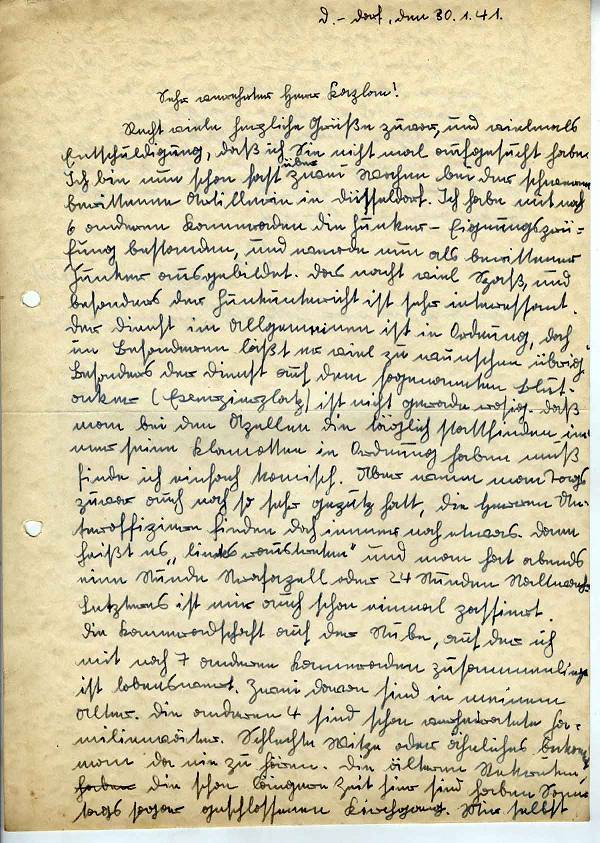 D.-dorf, den 30.1.41.
Sehr verehrter Herr Kaplan!
Recht viele herzliche Grüße zuvor, und vielmals
Entschuldigung, daß ich Sie nicht mal aufgesucht habe.
Ich bin nun schon fast über zwei Wochen bei der schweren
berittenen Artillerie in Düsseldorf. Ich habe mit noch
6 anderen Kameraden die Funker-Eignungsprü=
fung bestanden, und werde nun als berittener
Funker ausgebildet. Das macht viel Spaß, und
besonders der Funkunterricht ist sehr interessant.
Der Dienst im Allgemeinen ist in Ordnung, doch
im Besonderen läßt er viel zu wünschen übrig.
Besonders der Dienst auf dem sogenannten Blut-
acker (Exerzierplatz) ist nicht gerade rosig. Daß
man bei den Apellen die täglich stattfinden im
mer seine Klamotten in Ordnung haben muß
finde ich einfach komisch. Aber wenn man Tags
zuvor auch noch so sehr geputz hatt, die Herren Un-
teroffiziere finden doch immer noch etwas. Dann
heißt es „links raustreten" und man hat abends
eine Stunde Strafapell oder 24 Stunden Stallwache
Letzteres ist mir auch schon einmal passiert.
Die Kameradschaft auf der Stube, auf der ich
mit noch 7 anderen Kameraden zusammenliege
ist lobenswert. Zwei davon sind in meinem
Alter. Die anderen 4 sind schon verheiratete Fa-
milienväter. Schlechte Witze oder ähnliches bekommt
man da nie zu hören. Die älteren Rekruten,
haben die schon längere Zeit hier sind haben Sonn
tags sogar geschlossenen Kirchgang. Mir selbst